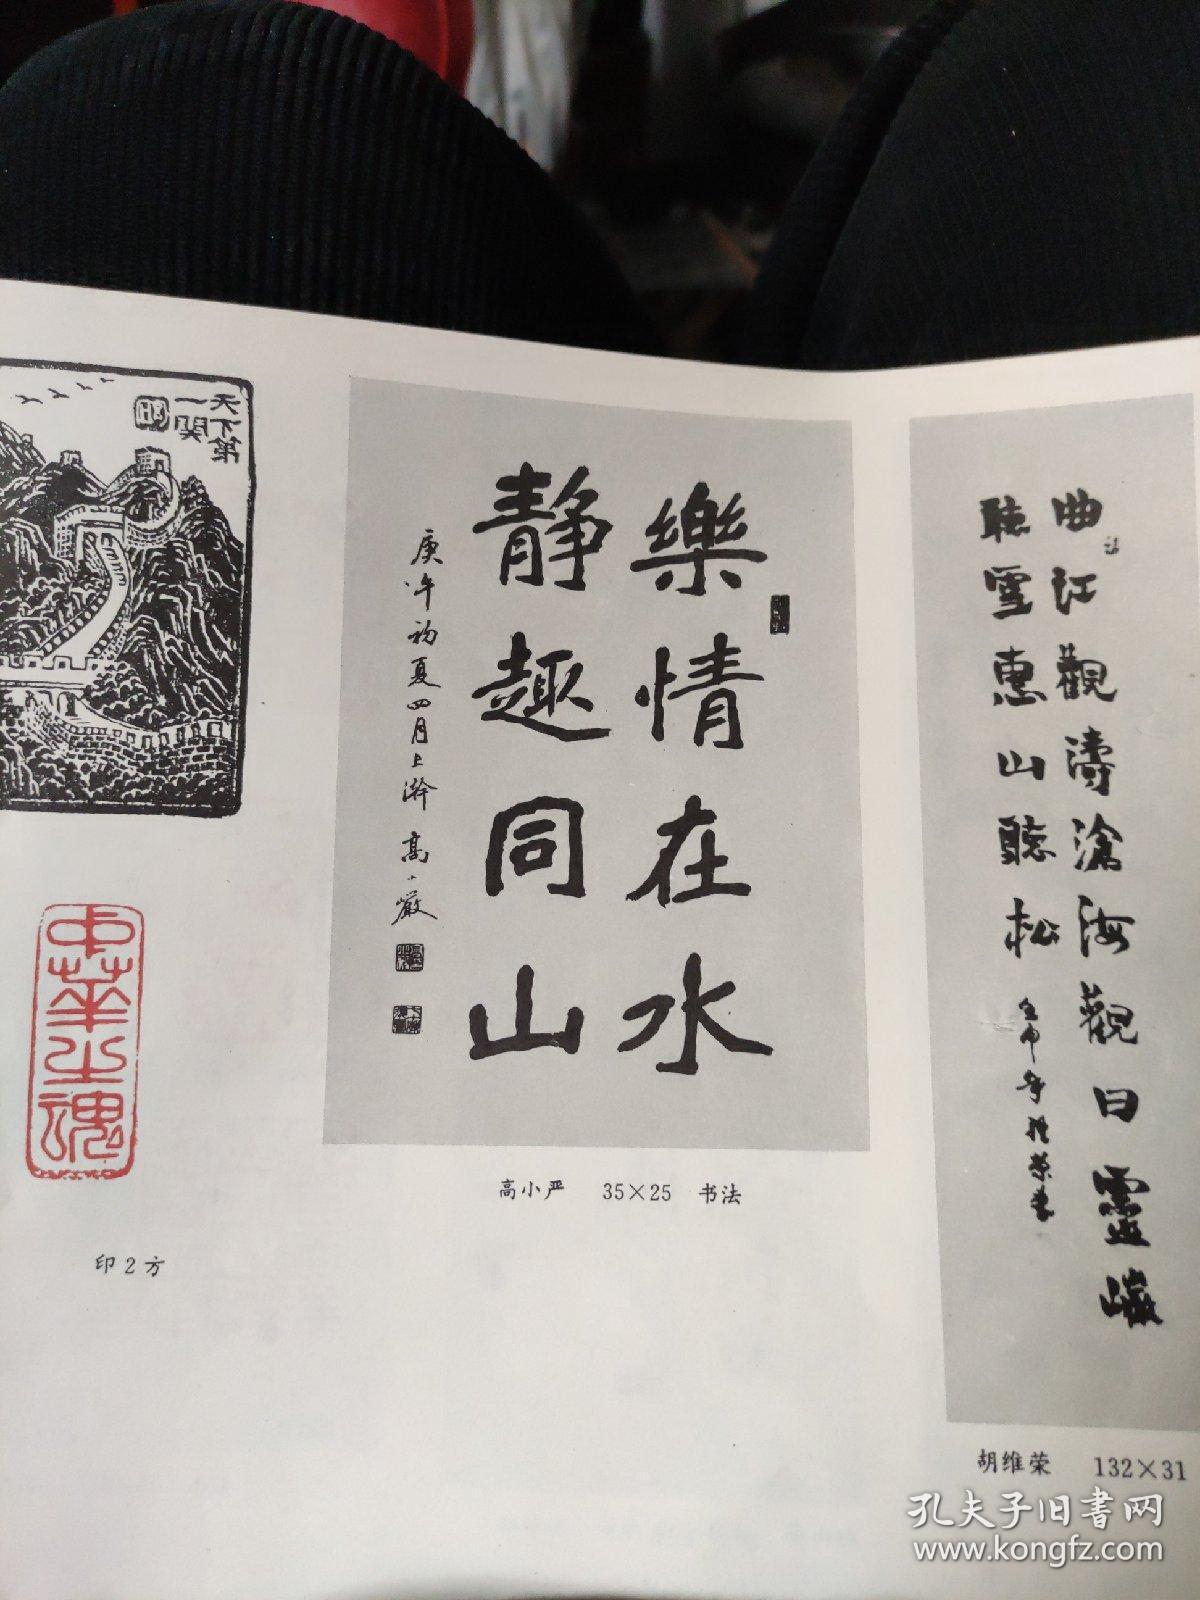 天下第
一関
中华之魂
印2方
樂情在水
靜趣同山
庚午初夏四月上澣 高小嚴
高小严 35×25 书法
曲江觀濤滄海觀日靈巖
聽雪惠山聽松
壬申年维荣書
胡维荣 132×31
孔夫子旧书网
www.kongfz.com